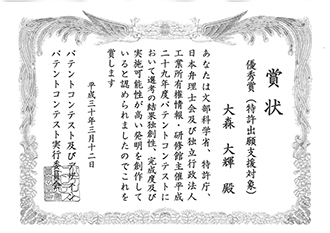 賞状
優秀賞(特許出願支援対象)
大森 大輝 殿
あなたは文部科学省、特許庁、
日本弁理士会及び独立行政法人
工業所有権情報・研修館主催平成
二十九年度パテントコンテストに
おいて選考の結果独創性、完成度及び
実施可能性が高い発明を創作して
いると認められましたのでこれを
賞します
平成三十年三月十二日
パテントコンテスト及びデザイン
パテントコンテスト実行委員会